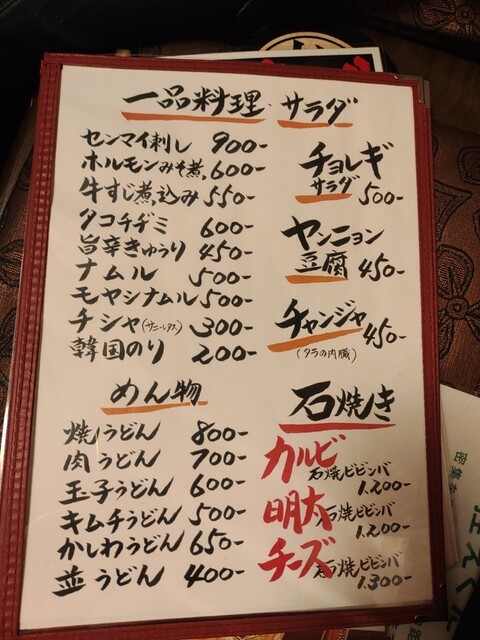 一品料理・サラダ
センマイ刺し 900-
ホルモンみそ煮 600-
牛すじ煮込み 550-
タコチヂミ 600-
旨辛きゅうり 450-
ナムル 500-
モヤシナムル 500-
チシャ(サニーレタス) 300-
韓国のり 200-
チョレギ
サラダ 500-
ヤンニョン
豆腐 450-
チャンジャ 450-
(タラの内臓)
めん物
焼うどん 800-
肉うどん 700-
玉子うどん 600-
キムチうどん 500-
かしわうどん 650-
並うどん 400-
石焼き
カルビ
石焼ビビンバ
1.200-
明太
石焼ビビンバ
1.200-
チーズ
石焼ビビンバ
1.300-